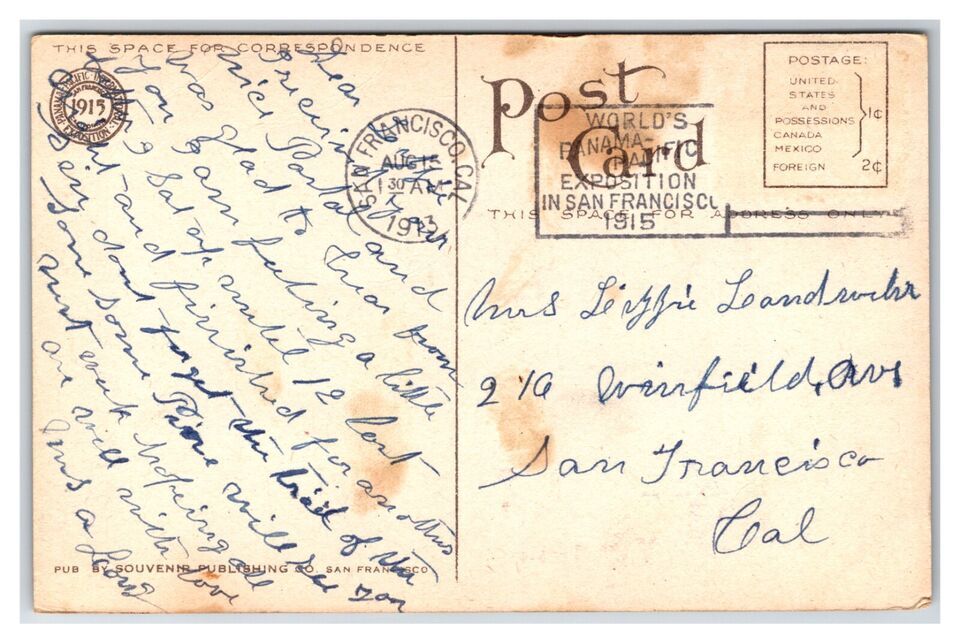 THIS SPACE FOR CORRESPONDENCE
PANAMA-PACIFIC-INTERNATIONAL EXPOSITION
SAN FRANCISCO
1915
SAN FRANCISCO, CAL.
AUG 15
1 30 AM
1913
Post Card
WORLD'S
PANAMA-
PACIFIC
EXPOSITION
IN SAN FRANCISCO
1915
POSTAGE:
UNITED
STATES
AND
POSSESSIONS
CANADA
MEXICO
1¢
FOREIGN 2¢
THIS SPACE FOR ADDRESS ONLY
Dear
received
nice Postal and
was glad to hear from
you I am feeling a little
Sat up until 12 last
and finished for another
dont forget the trail of the
Pine will see you
some
next week hopeing all
are well with love
Mrs a Long
Mrs Lizzie Landwehr
216 Winfield, Ave
San Francisco
Cal
PUB BY SOUVENIR PUBLISHING CO. SAN FRANCISCO